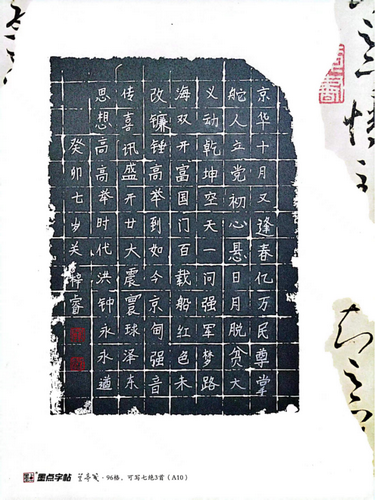 京华十月又逢春亿万民尊掌
舵人立党初心悬日月脱贫大
义动乾坤空天一问强军梦路
海双开富国门百载船红色未
改镰锤高举到如今京甸强音
传喜讯盛开廿大震寰球泽东
思想高高举时代洪钟永永遒
癸卯七岁关梓睿
墨点字帖 兰亭笺·96格，可写七绝3首（A10）